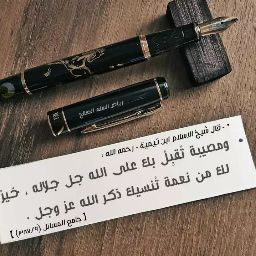 رياض السلف الصالح
• - قال شيخ الاسلام ابن تيمية - رحمه الله :
ومصيبة تُقبِلُ بك على الله جل جلاله ، خيرٌ
لك من نعمة تُنسيك ذكر الله عز وجل .
[ جامع المسائل